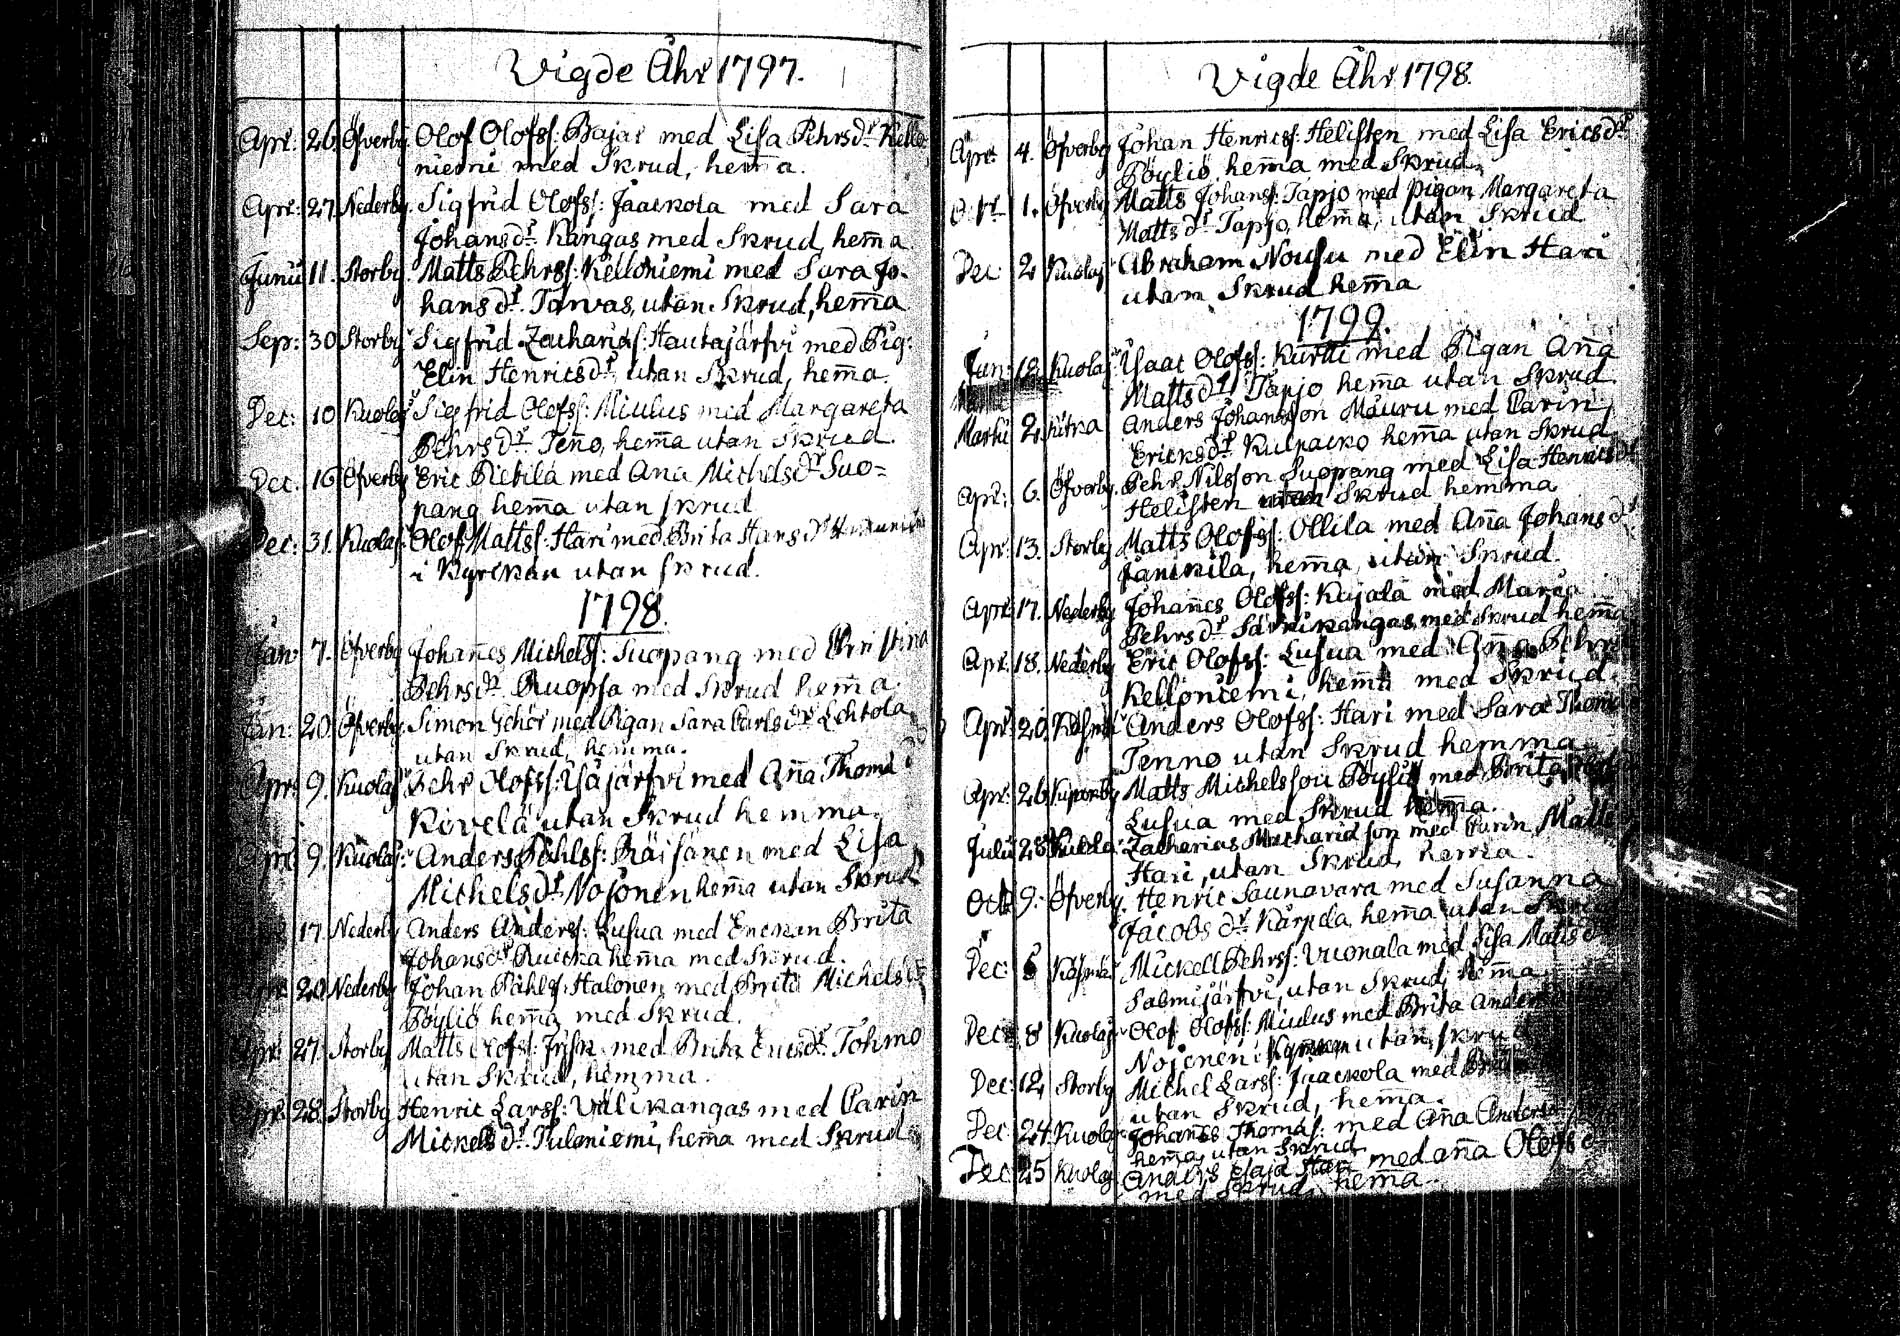 Vigde Åhr 1797.
Apr: 26. Öfverby Olof Olofsſ: Bajar med Liſa Pehrsdr
niemi med Skrud, hem̄a.
Apr: 27. Nederby. Sigfrid Olofsſ: Jaackola med Sara
Johansdr Kangas med Skrud, hem̄a
Junii 11. Storby Matts Pehrsſ: Kelloniemi med Sara Jo-
hansdr Torvas, utan Skrud, hem̄a
Sep: 30 Storby Sigfrid Zachariæſ: Hautajärfvi med Pig:
Elin Henricsdr, utan Skrud, hem̄a.
Dec: 10 Kuolaj Sigfrid Olofsſ: Miulus med Margareta
Pehrsdr Teño, hem̄a utan Skrud.
Dec. 16 Öfverby Eric Pietilä med Ana Michelsdr Suo=
pang hem̄a utan ſkrud
Dec: 31. Kuolaj: Olof Mattsſ: Hari med Brita Hansdr
i Kyrckan utan ſkrud.
1798.
Jan: 7. Öfverby Johañes Michelsſ: Suopang med Christina
Pehrsdr Ruopſa med Skrud hem̄a.
Jan: 20. Öfverby. Simon Schör med Pigan Sara Carlsdr Lehtola
utan Skrud, hemma.
Apr: 9. Kuolaj Pehr Olofsſ: Yſäjärfvi med Aña Thomædr
Kovela utan Skrud hemma.
Apr: 9. Kuolaj: Anders Påhlsſ: Räiſänen med Liſa
Michelsdr Nojonen hem̄a utan Skrud
17. Nederby Anders Andersſ: Luſua med Enckan Brita
Johansdr Ruicka hem̄a med Skrud.
Apr: 20 Nederby Johan Påhlsſ: Halonen med Brita Michelsdr
Pöyliö hem̄a med Skrud.
Apr: 27. Storby Matts Olofsſ: Friſk med Brita Ericsdr Tohmo
utan Skrud, hemma.
Apr: 28. Storby Henric Larsſ: Välikangas med Carin
Mickelsdr Tulaniemi, hem̄a med Skrud
Vigde Åhr 1798.
Apr: 4. Öfverby Johan Henricsſ: Heliſten med Liſa Ericsdr
Pöyliö, hem̄a med Skrud.
1. Öfverby Matts Johansſ: Tapjo med pigan Margareta
Mattsdr Tapjo, hem̄a, utan Skrud
Dec: 2 Kuolaj Abraham Nouſu med Elin Hari
utan Skrud hem̄a
1799.
Jan: 12. Kuolaj: Yſaac Olofsſ: Kurtti med Pigan Aña
Mattsdr Tapjo hem̄a utan Skrud.
Martii 2. Kitka Anders Johansſon Mauru med Carin
Ericksdr Kulpacko hem̄a utan Skrud
Apr: 6. Öfverby. Pehr Nilsſon Suopang med Liſa Henricsdr
Heliſten Skrud hemma
Apr: 13. Storby Matts Olofsſ: Ollila med Aña Johansdr
Jänckilä, hem̄a, utan Skrud.
Apr: 17. Nederby Johañes Olofsſ: Kajala med Maria
Pehrsdr Särkikangas, med Skrud hem̄a
Apr: 18. Nederby Eric Olofsſ: Luſua med Aña Pehrs
Kelloniemi, hem̄a med Skrud.
Apr: 20. Anders Olofsſ: Hari med Sara Thomæ
Tenno utan Skrud hemma
Apr: 26. Matts Michelsſon Pöyliö med Brita
Luſua med Skrud hem̄a.
Julii 28. Zacharias Zachariæ ſon med Carin Matts
Hari, utan Skrud, hem̄a.
Octb 9. Öfverby. Henric Saunavara med Suſanna
Jacobsdr Kärpela, hem̄a utan Skrud
Dec: Mickell Pehrsſ: Vuonala med Liſa Mattsdr
Salmijärfvi, utan Skrud, hem̄a
Dec: 8 Kuolaj: Olof Olofsſ: Miulus med Brita Anders
Nojonen i Kyrckan utan ſkrud
Dec: 12. Storby Michel Larsſ: Jaackola med
utan Skrud, hem̄a.
Dec: 24. Kuolaj: Johañes Thomæſ: med Aña Anders
hem̄a, utan Skrud
Dec: 25 Kuolaj Anders med aña Olofsdr
med Skrud, hem̄a.